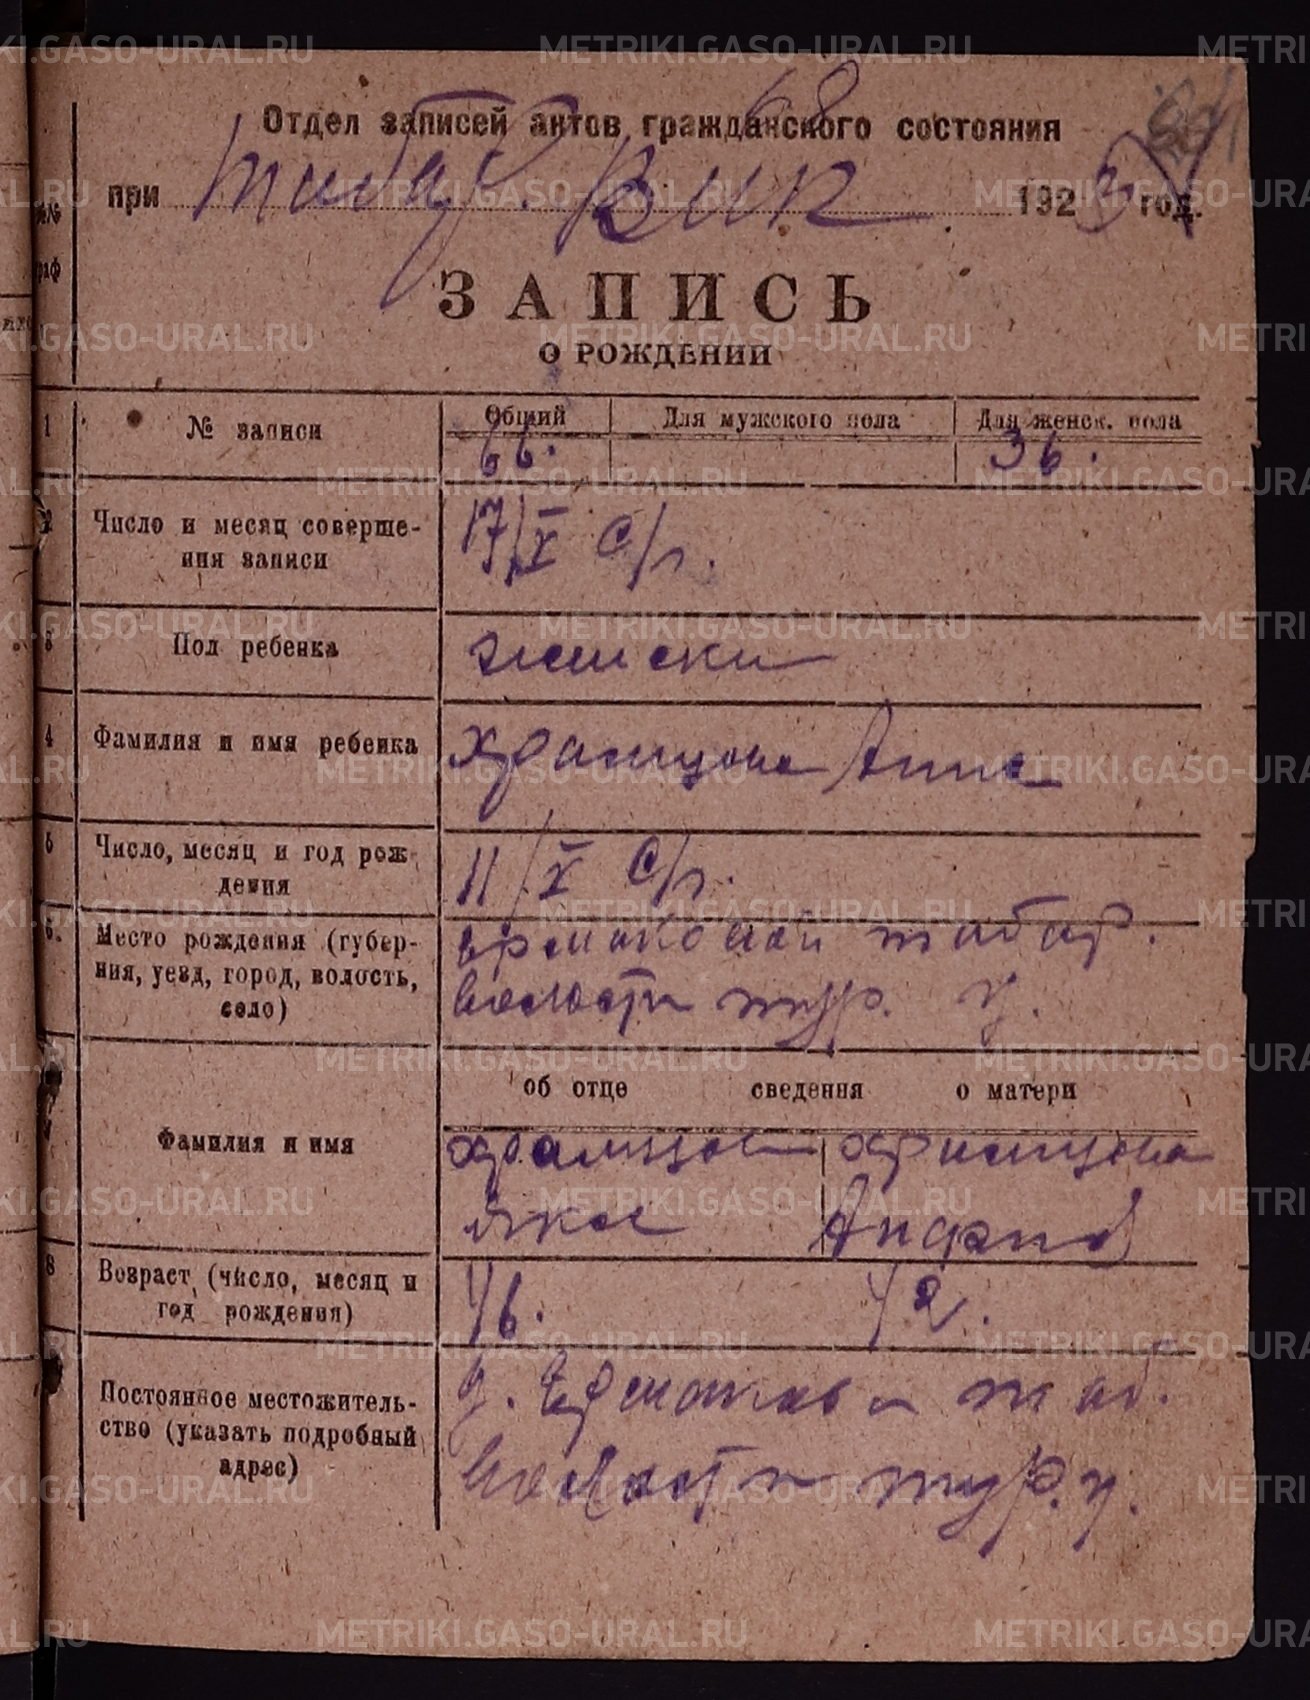 68
Отдел записей актов гражданского состояния
при Табар. Вик 1923 год.
ЗАПИСЬ
О РОЖДЕНИИ
1 № записи Общий Для мужского пола Для женск. пола
66. 36.
2 Число и месяц соверше-
ния записи 17/X с/г.
3 Пол ребенка женски
4 Фамилия и имя ребенка Храмцова Анна
5 Число, месяц и год рож-
дения 11/X с/г.
6. Место рождения (губер-
ния, уезд, город, волость,
село)
табар.
волости тур. у.
об отце сведения о матери
Фамилия и имя Храмцов Храмцова
Яков
8 Возраст (число, месяц и
год рождения) 46. 42.
Постоянное местожитель-
ство (указать подробный
адрес)
д. Ермакова таб.
волости тур. у.
METRIKI.GASO-URAL.RU